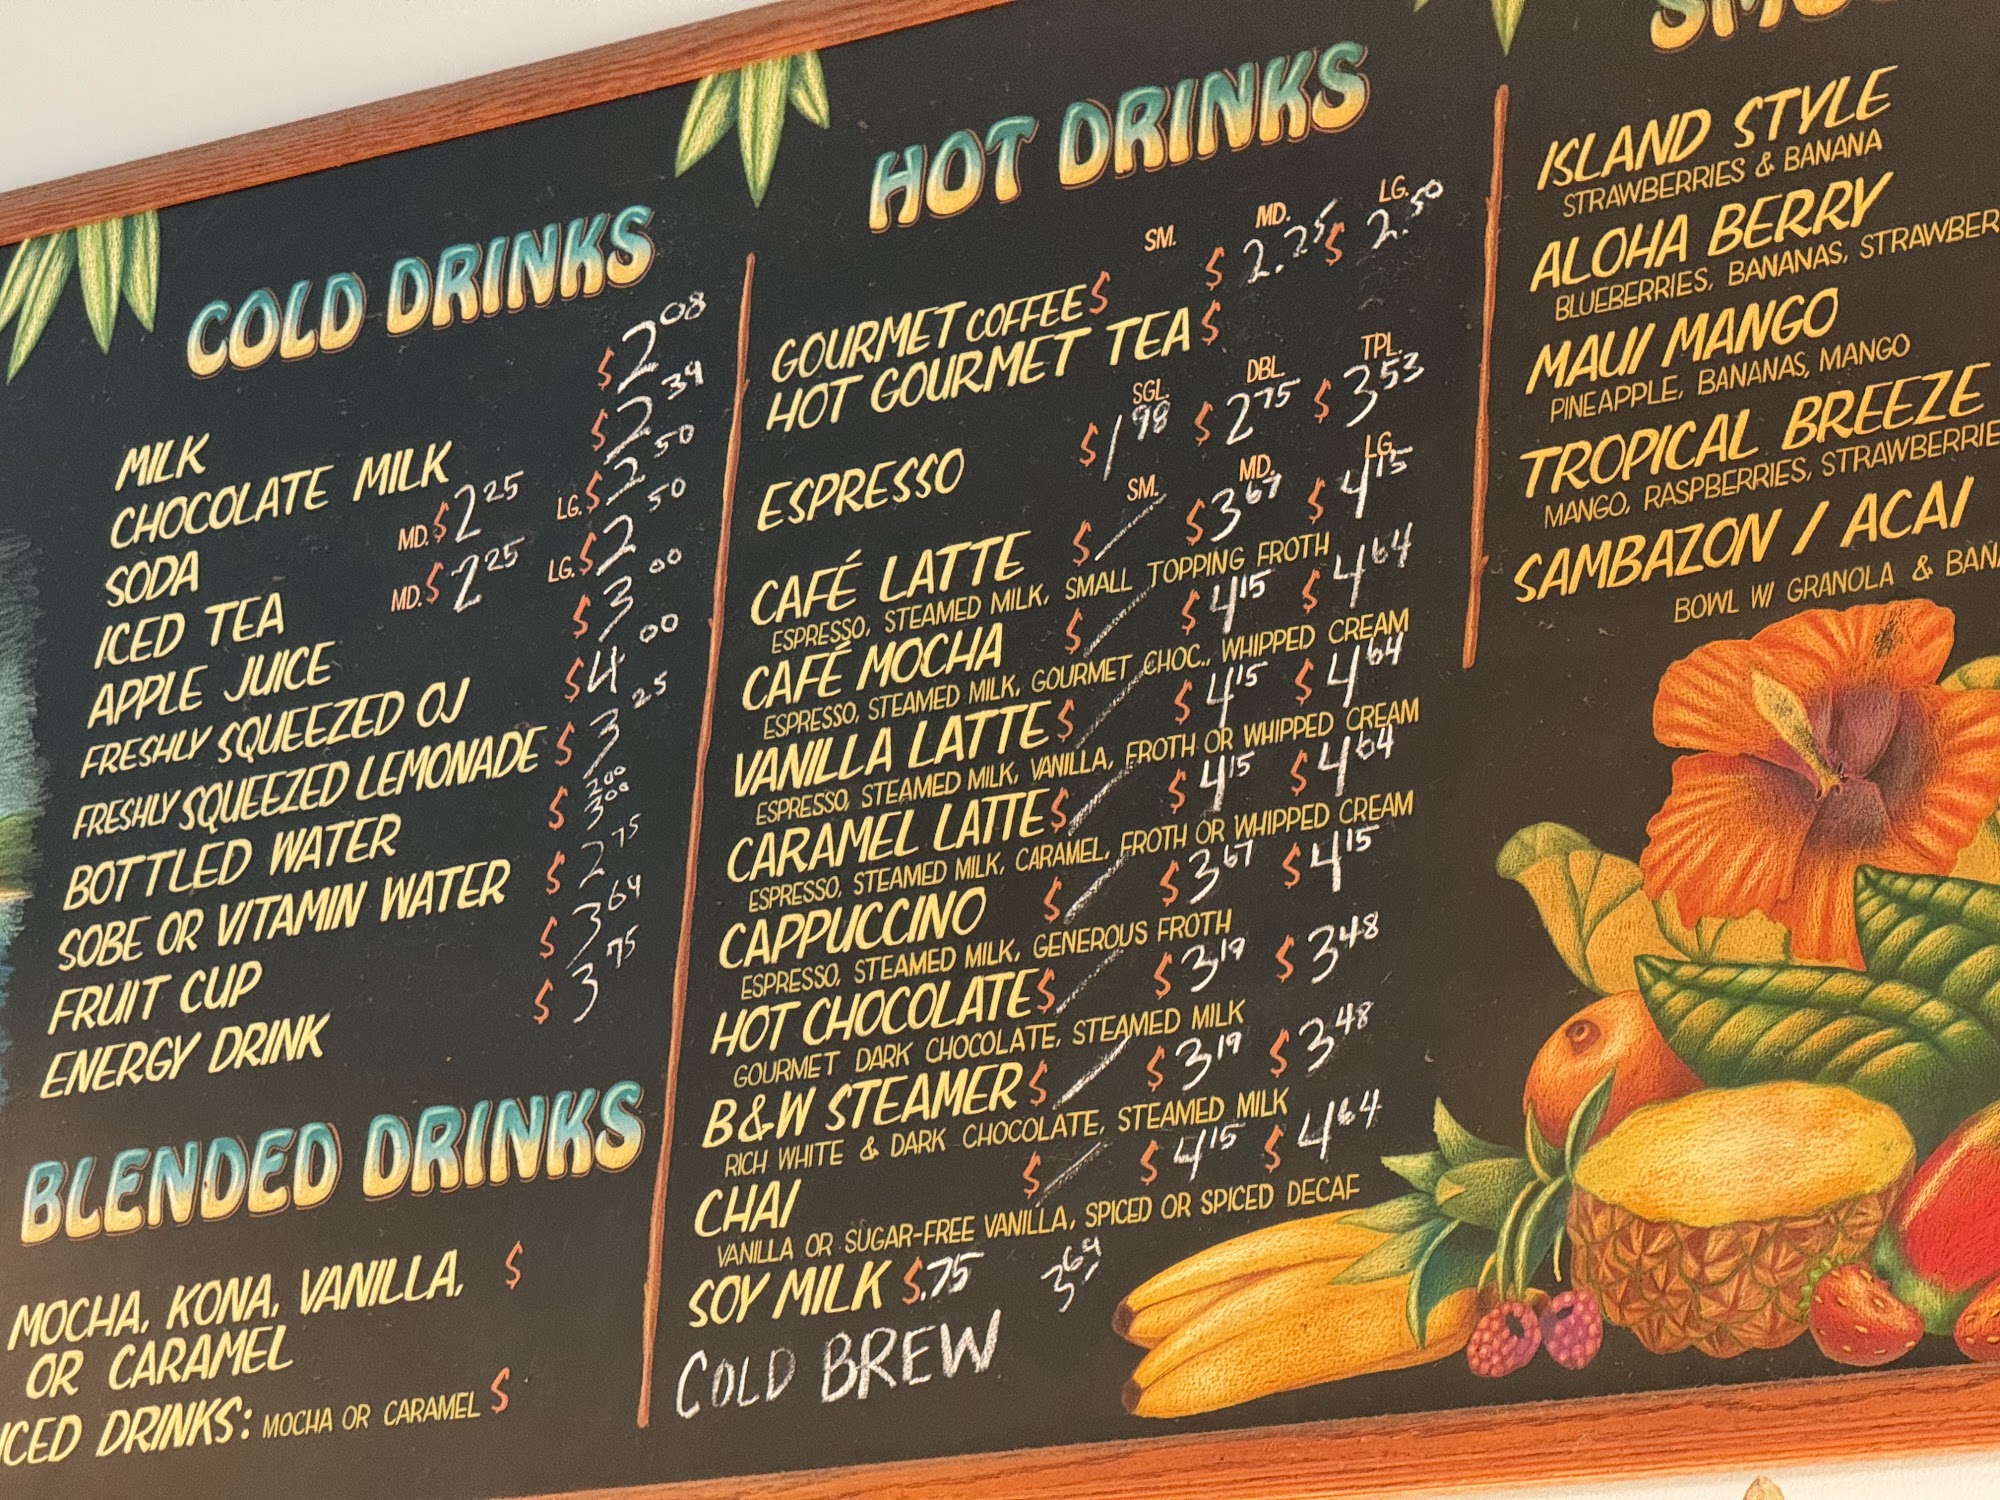 COLD DRINKS
MILK $2.08
CHOCOLATE MILK $2.39
SODA MD. $2.25 LG. $2.50
ICED TEA MD. $2.25 LG. $2.50
APPLE JUICE $3.00
FRESHLY SQUEEZED OJ $4.00
FRESHLY SQUEEZED LEMONADE $3.25
BOTTLED WATER $2.00 3.00
SOBE OR VITAMIN WATER $2.75
FRUIT CUP $3.64
ENERGY DRINK $3.75
BLENDED DRINKS
MOCHA, KONA, VANILLA, $
OR CARAMEL
ICED DRINKS: MOCHA OR CARAMEL $
HOT DRINKS
SM. MD. LG.
GOURMET COFFEE $ $2.25 $2.50
HOT GOURMET TEA $
SGL. DBL. TPL.
ESPRESSO $1.98 $2.75 $3.53
SM. MD. LG.
CAFÉ LATTE $ $3.67 $4.15
ESPRESSO, STEAMED MILK, SMALL TOPPING FROTH
CAFÉ MOCHA $ $4.15 $4.64
ESPRESSO, STEAMED MILK, GOURMET CHOC., WHIPPED CREAM
VANILLA LATTE $ $4.15 $4.64
ESPRESSO, STEAMED MILK, VANILLA, FROTH OR WHIPPED CREAM
CARAMEL LATTE $ $4.15 $4.64
ESPRESSO, STEAMED MILK, CARAMEL, FROTH OR WHIPPED CREAM
CAPPUCCINO $ $3.67 $4.15
ESPRESSO, STEAMED MILK, GENEROUS FROTH
HOT CHOCOLATE $ $3.19 $3.48
GOURMET DARK CHOCOLATE, STEAMED MILK
B&W STEAMER $ $3.19 $3.48
RICH WHITE & DARK CHOCOLATE, STEAMED MILK
CHAI $ $4.15 $4.64
VANILLA OR SUGAR-FREE VANILLA, SPICED OR SPICED DECAF
SOY MILK $.75
COLD BREW 3.64
ISLAND STYLE
STRAWBERRIES & BANANA
ALOHA BERRY
BLUEBERRIES, BANANAS, STRAWBER
MAUI MANGO
PINEAPPLE, BANANAS, MANGO
TROPICAL BREEZE
MANGO, RASPBERRIES, STRAWBERRIE
SAMBAZON / ACAI
BOWL W/ GRANOLA & BANA